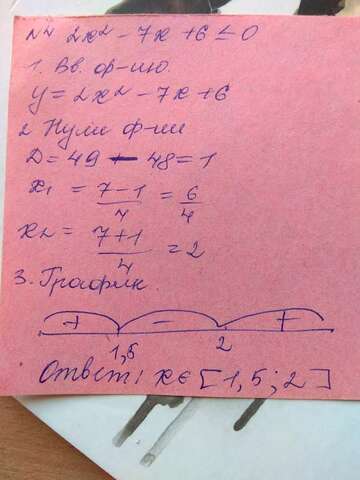 № 2x² - 7x + 6 ≤ 0
1. Вв. ф-ию.
y = 2x² - 7x + 6
2 Нули ф-ии
D = 49 - 48 = 1
x₁ = (7-1)/4 = 6/4
x₂ = (7+1)/4 = 2
3. График.
+ - +
1,5 2
Ответ: x ∈ [1,5; 2]